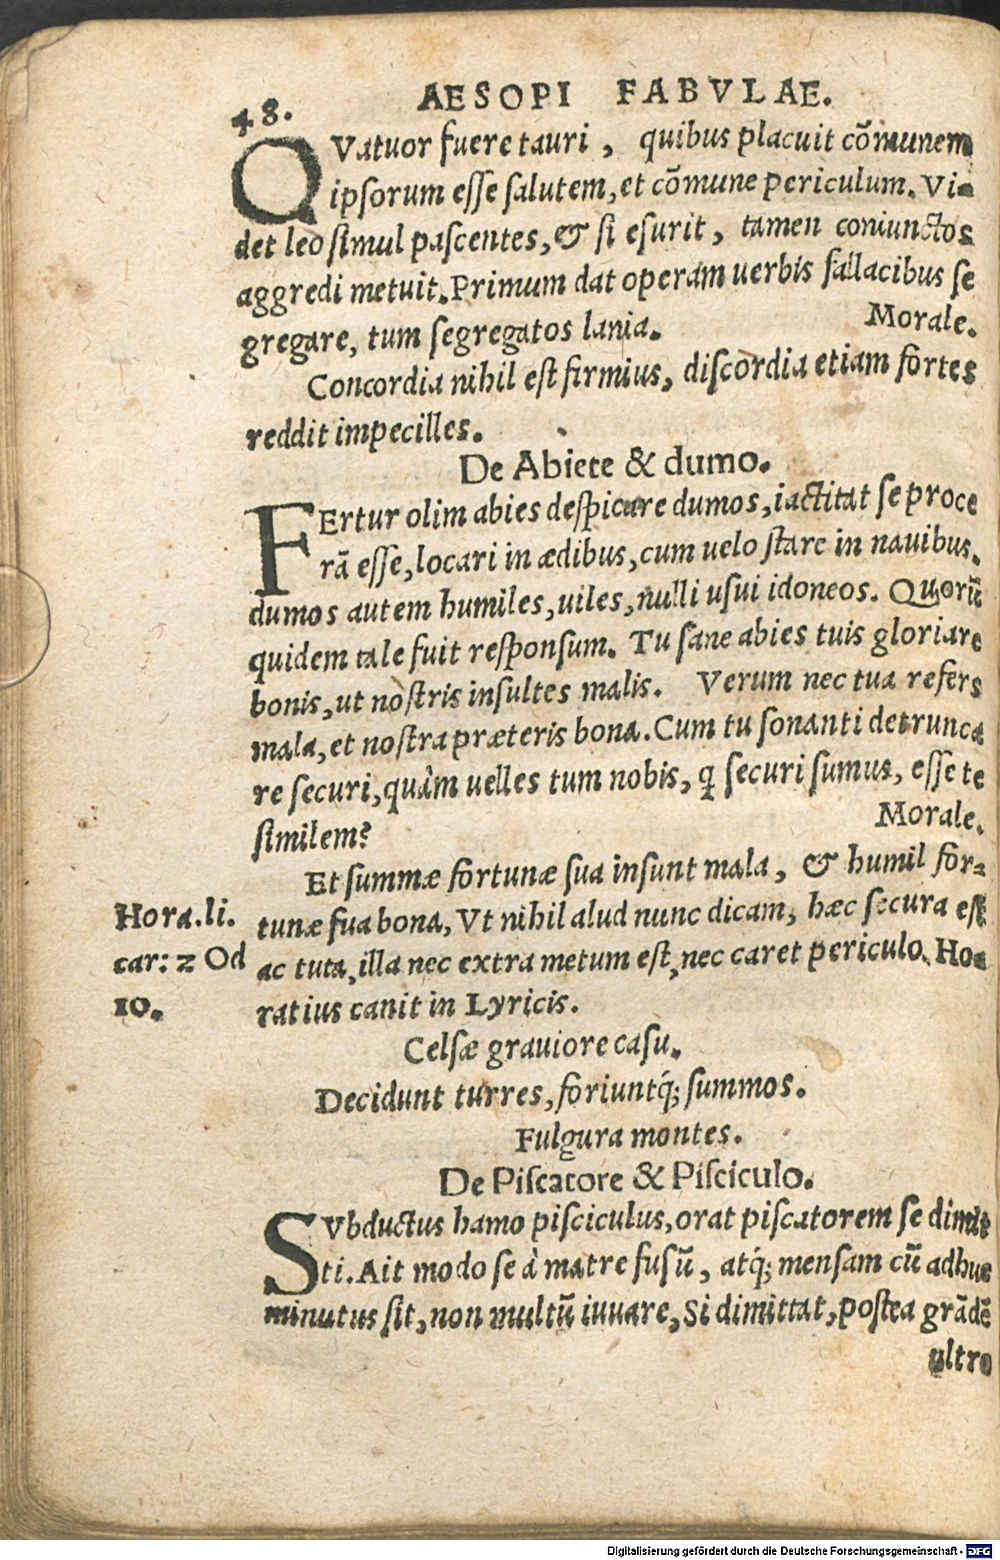 48.
AESOPI FABVLAE.
QVatuor fuere tauri, quibus placuit cõmunem
ipsorum esse salutem, et cõmune periculum. Vi-
det leo simul pascentes, & si esurit, tamen coniunctos
aggredi metuit. Primum dat operam uerbis fallacibus se
gregare, tum segregatos lania.
Morale.
Concordia nihil est firmius, discordia etiam fortes
reddit impecilles.
De Abiete & dumo.
FErtur olim abies despicare dumos, iactitat se proce
rã esse, locari in ædibus, cum uelo stare in nauibus.
dumos autem humiles, uiles, nulli usui idoneos. Quorũ
quidem tale fuit responsum. Tu sane abies tuis gloriare
bonis, ut nostris insultes malis. Verum nec tua refers
mala, et nostra præteris bona. Cum tu sonanti detrunca
re securi, quàm uelles tum nobis, ꝗ securi sumus, esse te
similem?
Morale.
Et summæ fortunæ sua insunt mala, & humil for-
tunæ sua bona, Vt nihil alud nunc dicam, hæc secura est
ac tuta, illa nec extra metum est, nec caret periculo. Ho-
ratius canit in Lyricis.
Hora. li.
car: 2 Od
10.
Celsæ grauiore casu.
Decidunt turres, foriuntq́; summos.
Fulgura montes.
De Piscatore & Pisciculo.
SVbductus hamo pisciculus, orat piscatorem se dimit
ti. Ait modo se à matre fusũ, atq́; mensam cũ adhuc
minutus sit, non multũ iuuare, Si dimittat, postea grãdẽ
ultro
Digitalisierung gefördert durch die Deutsche Forschungsgemeinschaft - DFG